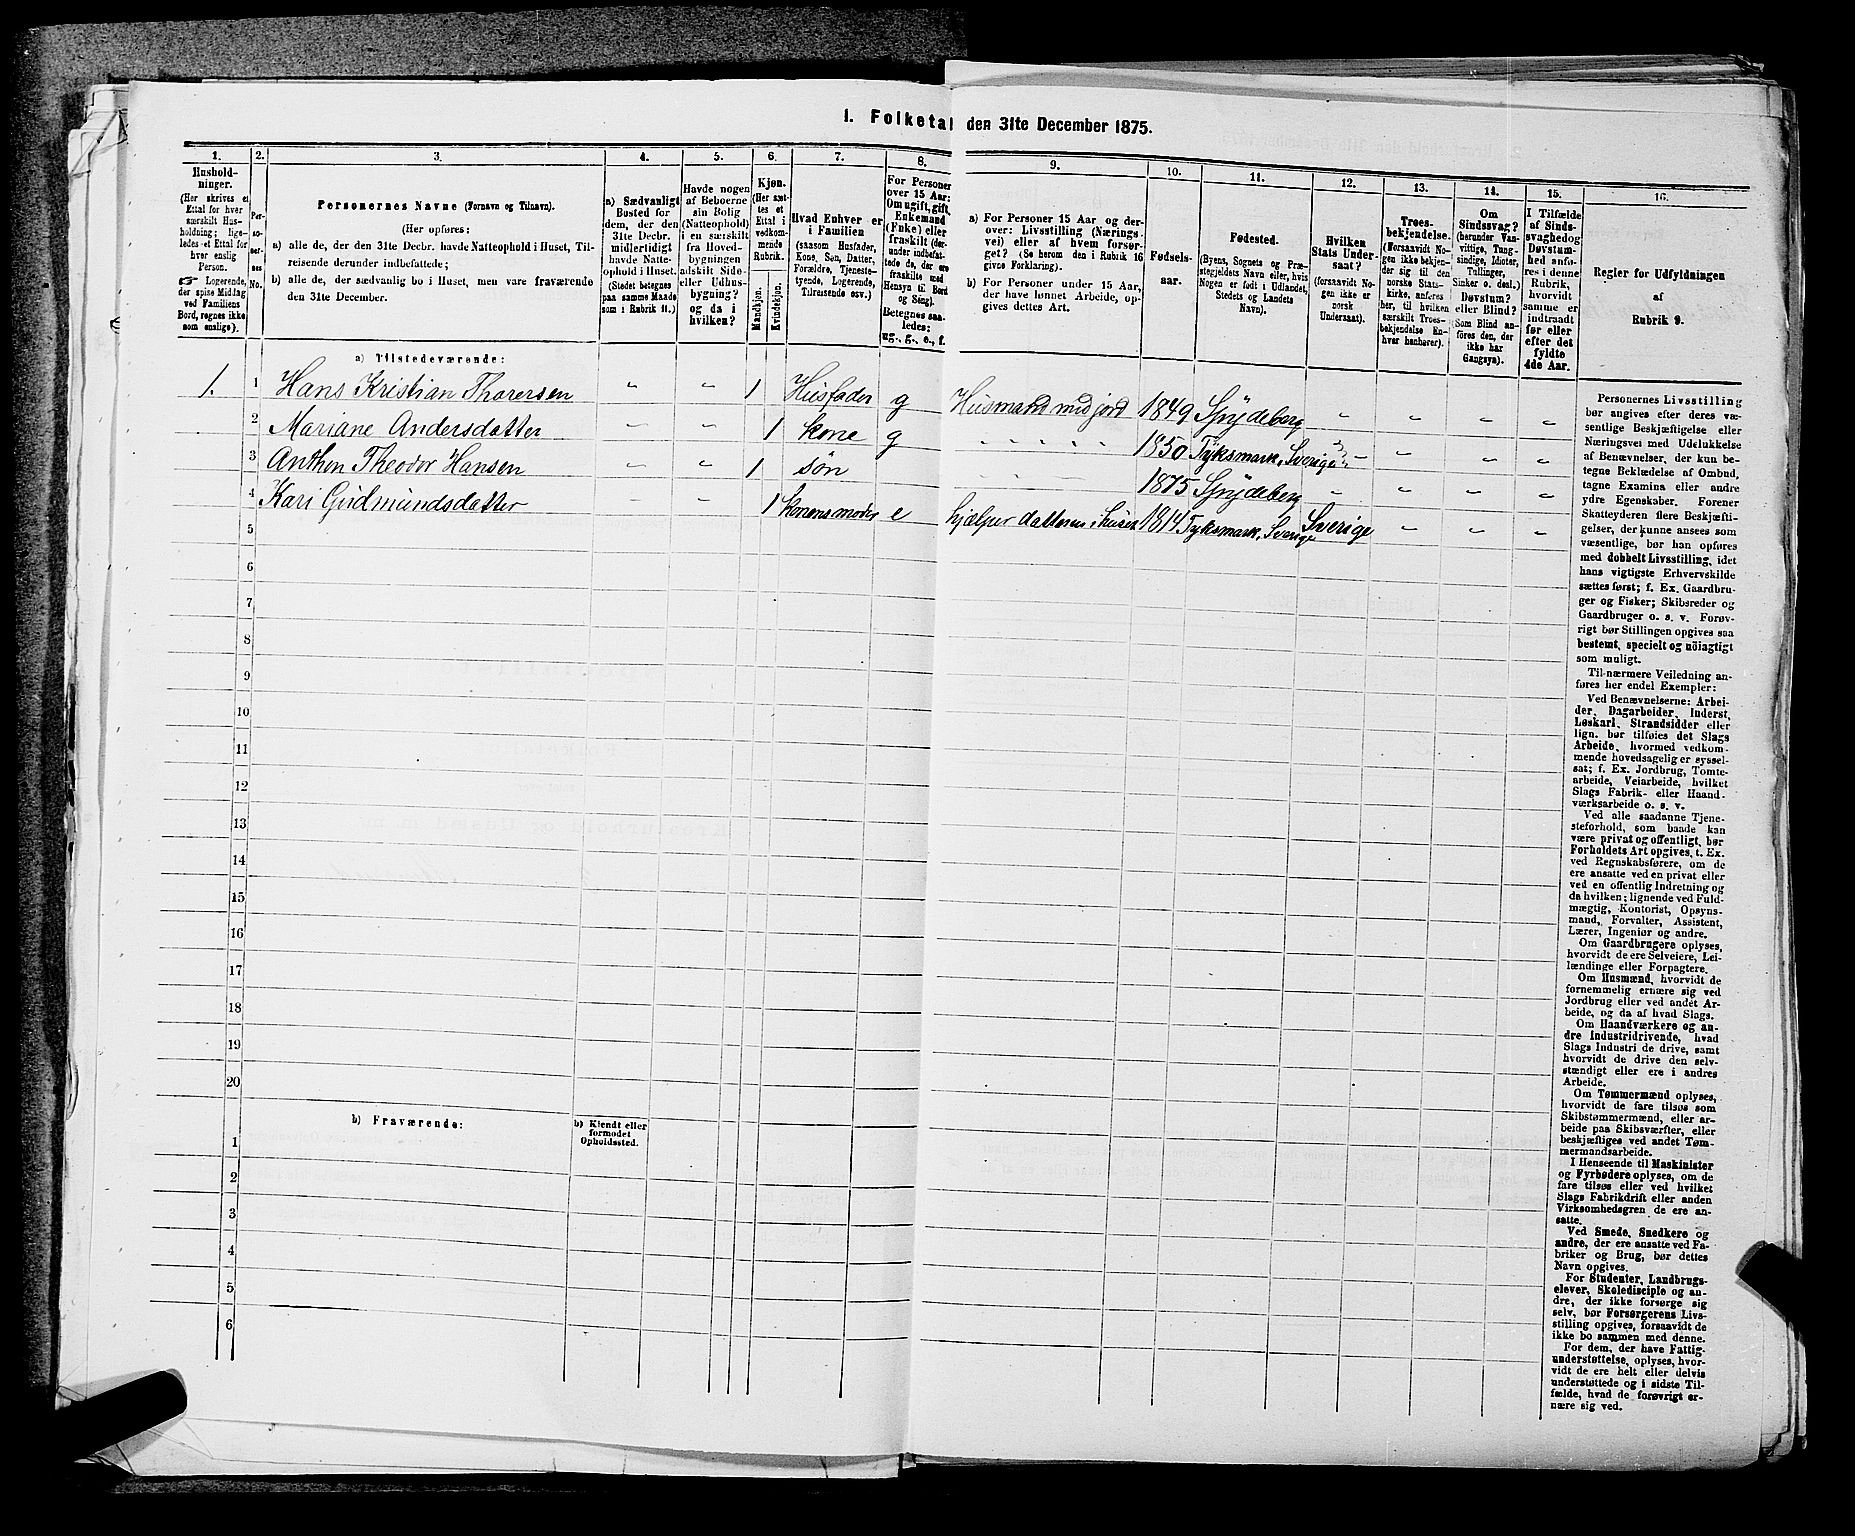 1. Folketal den 31te December 1875.
1. 2. 3. 4. 5. 6. 7. 8. 9. 10. 11. 12. 13. 14. 15. 16.
Hushold-
ninger.
(Her skrives et
Ettal for hver
særskilt Hus-
holdning; lige-
ledes et Ettal for
hver enslig
Person.
☞ Logerende,
der spise Middag
ved Familiens
Bord, regnes ikke
som enslige).
Per-
so-
ner-
nes
No.
Personernes Navne (Fornavn og Tilnavn).
(Her opføres:
a) alle de, der den 31te Decbr. havde Natteophold i Huset, Til-
reisende derunder indbefattede;
b) alle de, der sædvanlig bo i Huset, men vare fraværende
den 31te December.
a) Sædvanligt
Bosted for
dem, der den
31te Decbr.
midlertidigt
havde Natte-
ophold i Huset.
(Stedet betegnes
paa samme Maade
som i Rubrik 11.)
Havde nogen
af Beboerne
sin Bolig
(Natteophold)
i en særskilt
fra Hoved-
bygningen
adskilt Side-
eller Udhus-
bygning?
og da i
hvilken?
Kjøn.
(Her sæt-
tes et
Ettal i
vedkom-
mende
Rubrik.
Mandkjøn.
Kvindekjøn.
Hvad Enhver er
i Familien
(saasom Husfader,
Kone, Søn, Datter,
Forældre, Tjeneste-
tyende, Logerende,
Tilreisende osv.)
For Personer
over 15 Aar:
Om ugift, gift,
Enkemand
(Enke) eller
fraskilt (der-
under indbefat-
tede de, der ere
fraskilte med
Hensyn til Bord
og Seng).
Betegnes saa-
ledes:
ug., g., e., f.
a) For Personer 15 Aar og der-
over: Livsstilling (Nærings-
vei) eller af hvem forsør-
get? (Se herom den i Rubrik 16
givne Forklaring).
b) For Personer under 15 Aar,
der have lønnet Arbeide, op-
gives dettes Art.
Fødsels-
aar.
Fødested.
(Byens, Sognets og Præ-
stegjeldets Navn eller, hvis
Nogen er født i Udlandet,
Stedets og Landets
Navn).
Hvilken
Stats Under-
saat?
(forsaavidt No-
gen ikke er
norsk
Undersaat).
Troes-
bekjendelse.
(Forsaavidt No-
gen ikke bekjen-
der sig til den
norske Stats-
kirke, anføres
her, til hvilken
særskilt Troes-
bekjendelse En-
hver henhører).
Om
Sindssvag?
(herunder Van-
vittige, Tung-
sindige, Idioter,
Tullinger,
Sinker o. desl.)
Døvstum?
eller Blind?
(Som Blind an-
føres den, der
ikke har
Gangsyn).
I Tilfælde
af Sinds-
svaghed og
Døvstum-
hed anfø-
res i denne
Rubrik,
hvorvidt
samme er
indtraadt
før eller
efter det
fyldte
4de Aar.
Regler for Udfyldningen
af
Rubrik 9.
a) Tilstedeværende:
1. 1 Hans Kristian Thorersen " " 1 Husfader g Husmand med jord 1849 Spydeberg " " " "
2 Mariane Andersdatter " " 1 kone g " " " " 1850 Tyksmark, Sverige " " " "
3 Anthon Theodor Hansen " " 1 søn " " " 1875 Spydeberg " " " "
4 Kari Gudmundsdatter " " 1 konens moder e hjælper datteren i huset 1814 Tyksmark, Sverige Sverige " " "
5
6
7
8
9
10
11
12
13
14
15
16
17
18
19
20
b) Fraværende:
b) Kjendt eller
formodet
Opholdssted.
1
2
3
4
5
6
Personernes Livsstilling
bør angives efter deres væ-
sentlige Beskjæftigelse eller
Næringsvei med Udelukkelse
af Benævnelser, der kun be-
tegne Beklædelse af Ombud,
tagne Examina eller andre
ydre Egenskaber. Forener
Skatteyderen flere Beskjæfti-
gelser, der kunne ansees som
væsentlige, bør han opføres
med dobbelt Livsstilling, idet
hans vigtigste Erhvervskilde
sættes først; f. Ex. Gaardbru-
ger og Fisker; Skibsreder og
Gaardbruger o. s. v. Forøv-
rigt bør Stillingen opgives saa
bestemt, specielt og nøiagtigt
som muligt.
Til nærmere Veiledning an-
føres her endel Exempler:
Ved Benævnelserne: Arbei-
der, Dagarbeider, Inderst,
Løskarl, Strandsidder eller
lign. bør tilføies det Slags
Arbeide, hvormed vedkom-
mende hovedsagelig er syssel-
sat; f. Ex. Jordbrug, Tomte-
arbeide, Veiarbeide, hvilket
Slags Fabrik- eller Haand-
værksarbeide o. s. v.
Ved alle saadanne Tjene-
steforhold, som baade kan
være privat og offentligt, bør
Forholdets Art opgives, t. Ex.
ved Regnskabsførere, om de
ere ansatte ved en privat eller
ved en offentlig Indretning og
da hvilken; lignende ved Fuld-
mægtig, Kontorist, Opsyns-
mand, Forvalter, Assistent,
Lærer, Ingeniør og andre.
Om Gaardbrugere oplyses,
hvorvidt de ere Selveiere, Lei-
lændinge eller Forpagtere.
Om Husmænd, hvorvidt de
fornemmelig ernære sig ved
Jordbrug eller ved andet Ar-
beide, og da af hvad Slags.
Om Haandværkere og an-
dre Industridrivende, hvad
Slags Industri de drive, samt
hvorvidt de drive den selv-
stændigt eller ere i andres
Arbeide.
Om Tømmermænd oplyses,
hvorvidt de fare tilsøs som
Skibstømmermænd, eller ar-
beide paa Skibsværfter, eller
beskjæftiges ved andet Tøm-
mermandsarbeide.
I Henseende til Maskinister
og Fyrbødere oplyses, om de
fare tilsøs eller ved hvilket
Slags Fabrikdrift eller anden
Virksomhedsgren de ere an-
satte.
Ved Smede, Snedkere og
andre, der ere ansatte ved Fa-
briker og Brug, bør dettes
Navn opgives.
For Studenter, Landbrugs-
elever, Skoledisciple og an-
dre, der ikke forsørge sig
selv, bør Forsørgerens Livs-
stilling opgives, forsaavidt de
ikke bo sammen med denne.
For dem, der have Fattig-
understøttelse, oplyses, hvor-
vidt de ere helt eller delvis
understøttede og i sidste Til-
fælde, hvad de forøvrigt er-
nære sig ved.